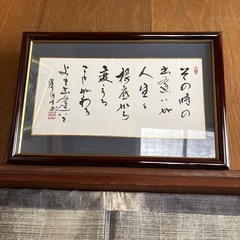 その時の
出逢いが
人生を
根底から
変える
ことがある
よき出逢いを